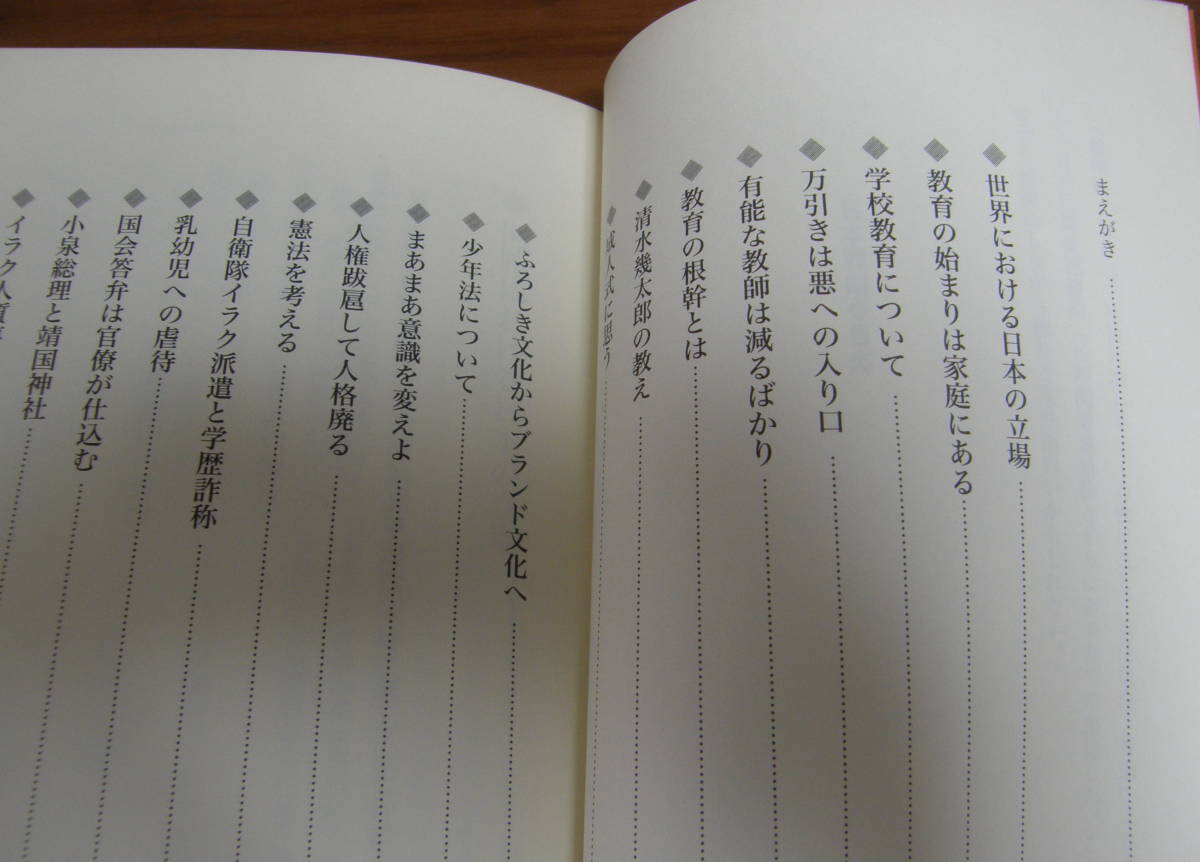 まえがき
◆世界における日本の立場
◆教育の始まりは家庭にある
◆学校教育について
◆万引きは悪への入り口
◆有能な教師は減るばかり
◆教育の根幹とは
◆清水幾太郎の教え
◆成人式に思う
◆ふろしき文化からブランド文化へ
◆少年法について
◆まあまあ意識を変えよ
◆人権跋扈して人格廃る
◆憲法を考える
◆自衛隊イラク派遣と学歴詐称
◆乳幼児への虐待
◆国会答弁は官僚が仕込む
◆小泉総理と靖国神社
◆イラク人質